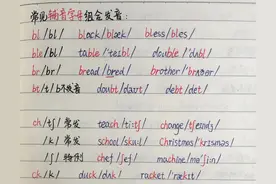 常见辅音字母组合发音:
bl /bl/ black /blæk/ bless/bles/
ble/bl/ table /'teɪbl/ double /'dʌbl/
br/br/ bread/bred/ brother/'brʌðər/
bt/t/b不发音 doubt/daʊt/ debt/det/
ch/tʃ/ 常发 teach/ti:tʃ/ change/tʃeɪndʒ/
/k/ 常发 school/sku:l/ Christmas/'krɪsməs/
/ʃ/ 特例 chef/ʃef/ machine/mə'ʃi:n/
ck/k/ duck/dʌk/ racket/'rækɪt/